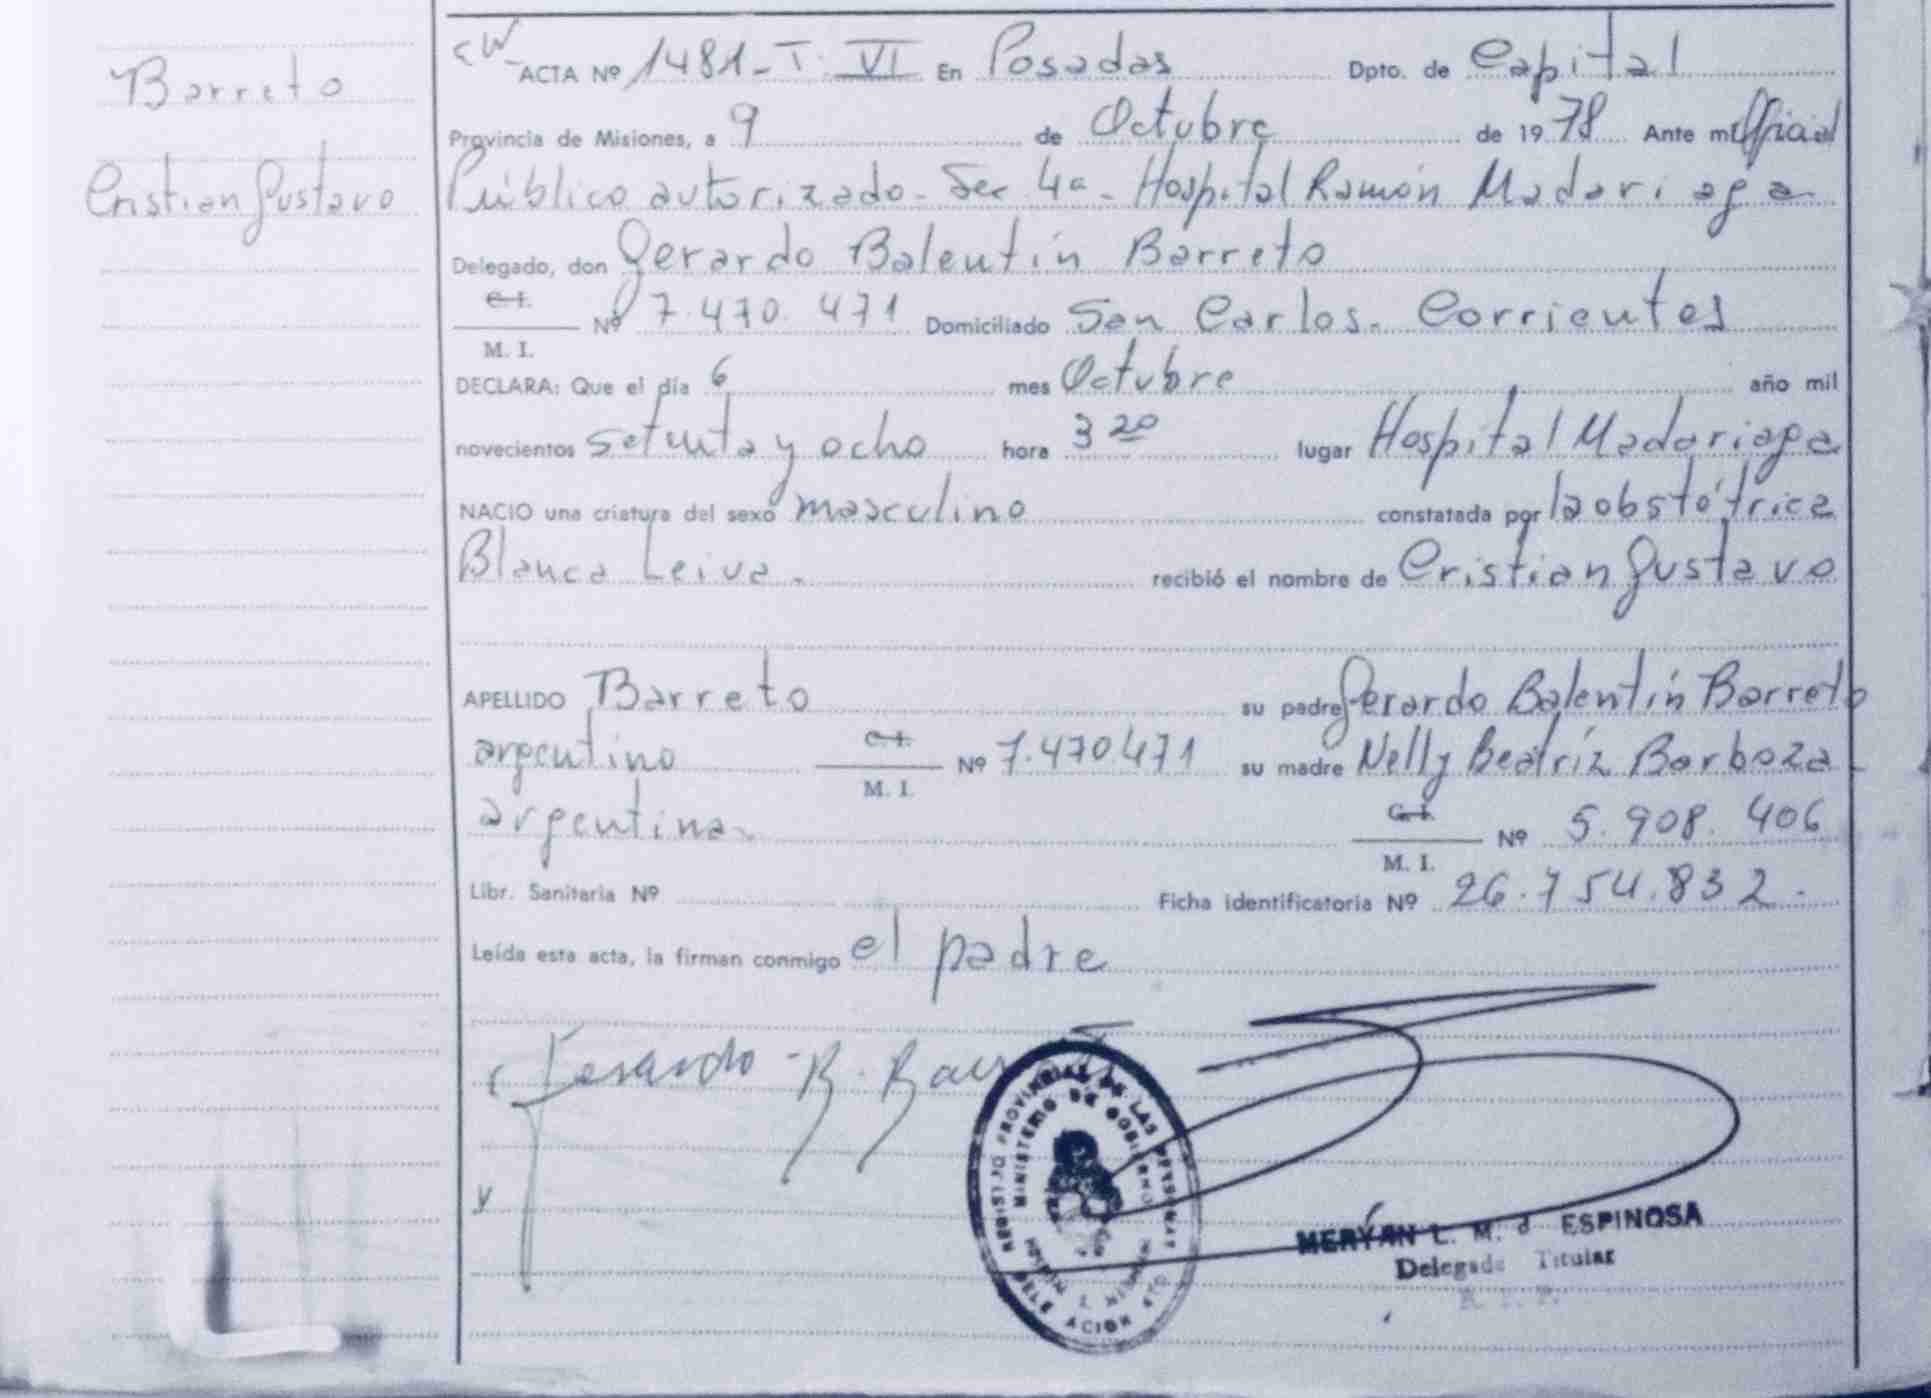 Barreto
Cristian Gustavo
ACTA Nº 1481 - T. VI En Posadas Dpto. de Capital
Provincia de Misiones, a 9 de Octubre de 1978 Ante mi Oficial
Público autorizado - Sec 4a - Hospital Ramón Madariaga
Delegado, don Gerardo Balentín Barreto
C. I.
M. I. Nº 7.470.471 Domiciliado San Carlos. Corrientes
DECLARA: Que el día 6 mes Octubre año mil
novecientos setenta y ocho hora 3 20 lugar Hospital Madariaga
NACIO una criatura del sexo masculino constatada por la obstétrica
Blanca Leiva. recibió el nombre de Cristian Gustavo
APELLIDO Barreto su padre Gerardo Balentín Barreto
argentino C. I. M. I. Nº 7.470471 su madre Nelly Beatríz Barboza
argentina. C. I. M. I. Nº 5.908.406
Libr. Sanitaria Nº Ficha identificatoria Nº 26.754.832.
Leída esta acta, la firman conmigo el padre
Gerardo B. Barreto
REGISTRO PROVINCIAL DE LAS PERSONAS
MINISTERIO DE GOBIERNO
MERYAN L. M. d ESPINOSA
Delegada Titular